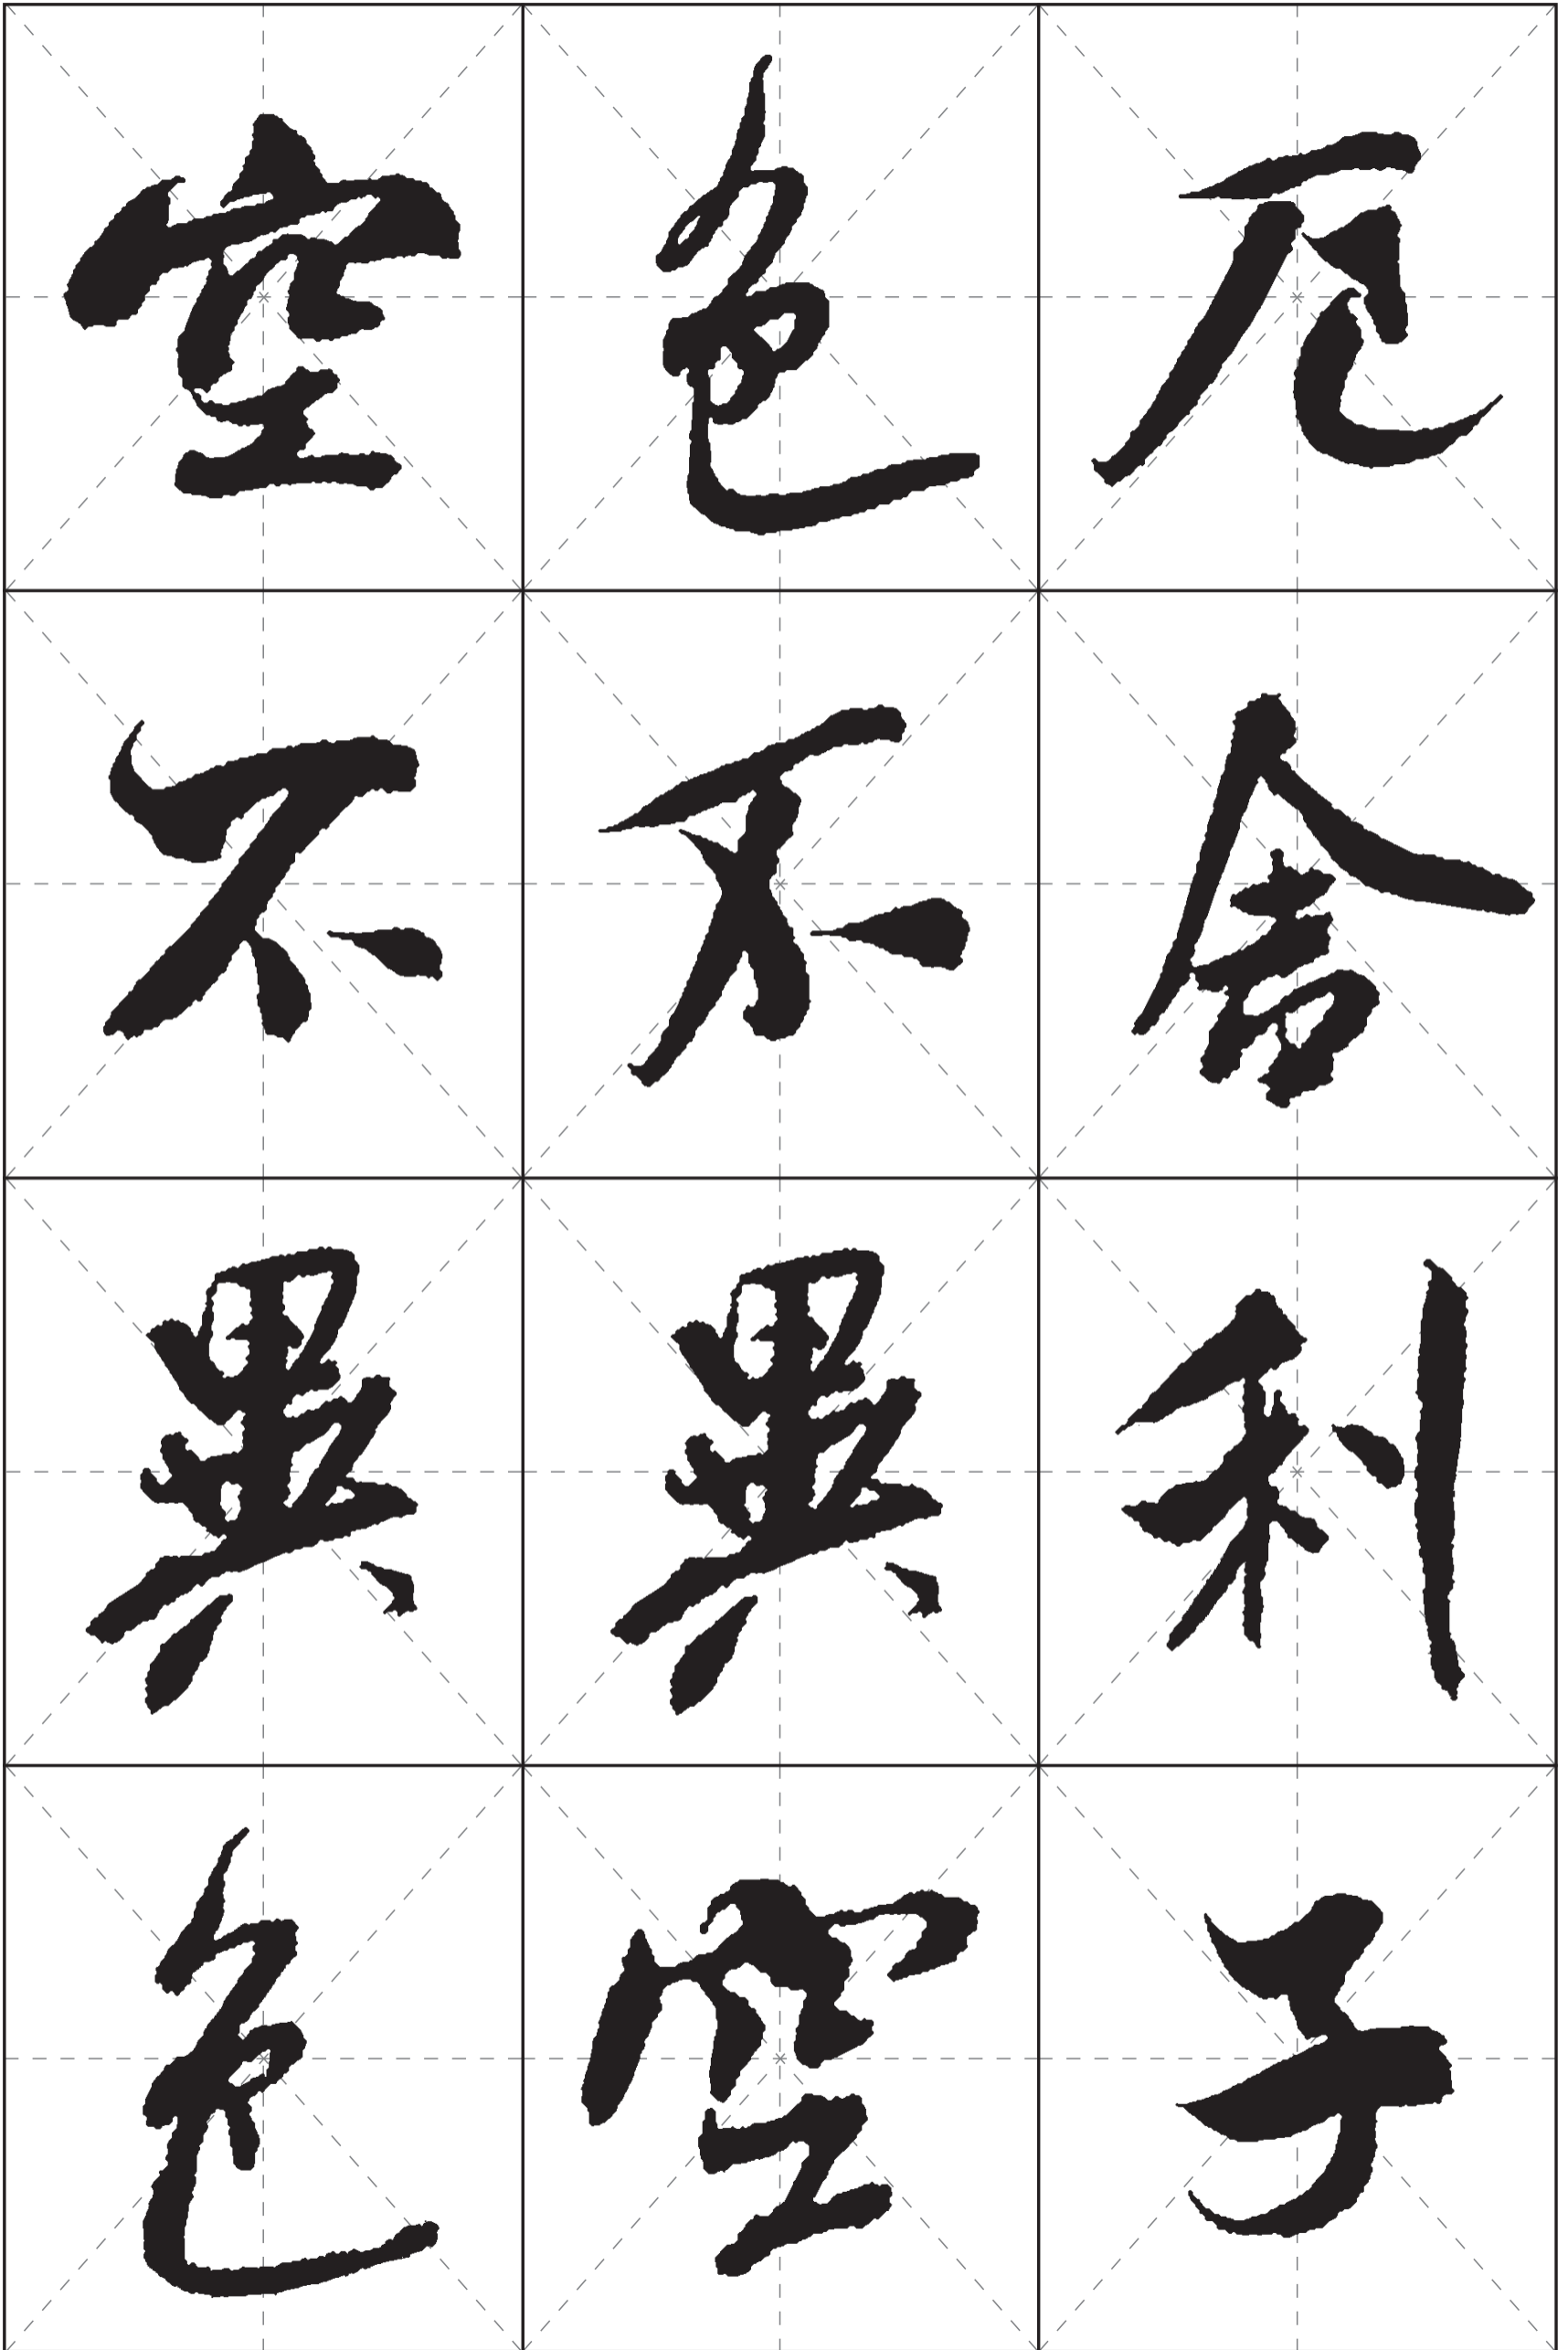 厄舍利子
色不異空
空不異色